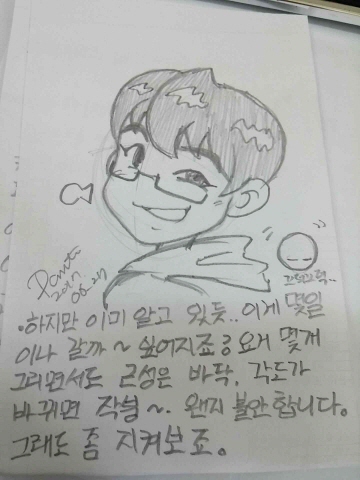 Panto
2017
06.27
끄덕끄덕..
·하지만 이미 알고 있듯.. 이게 몇일
이나 갈까~ 싶어지죠? 요거 몇개
그리면서도 근성은 바닥, 각도가
바뀌면 작붕~. 왠지 불안합니다.
그래도 좀 지켜보죠.